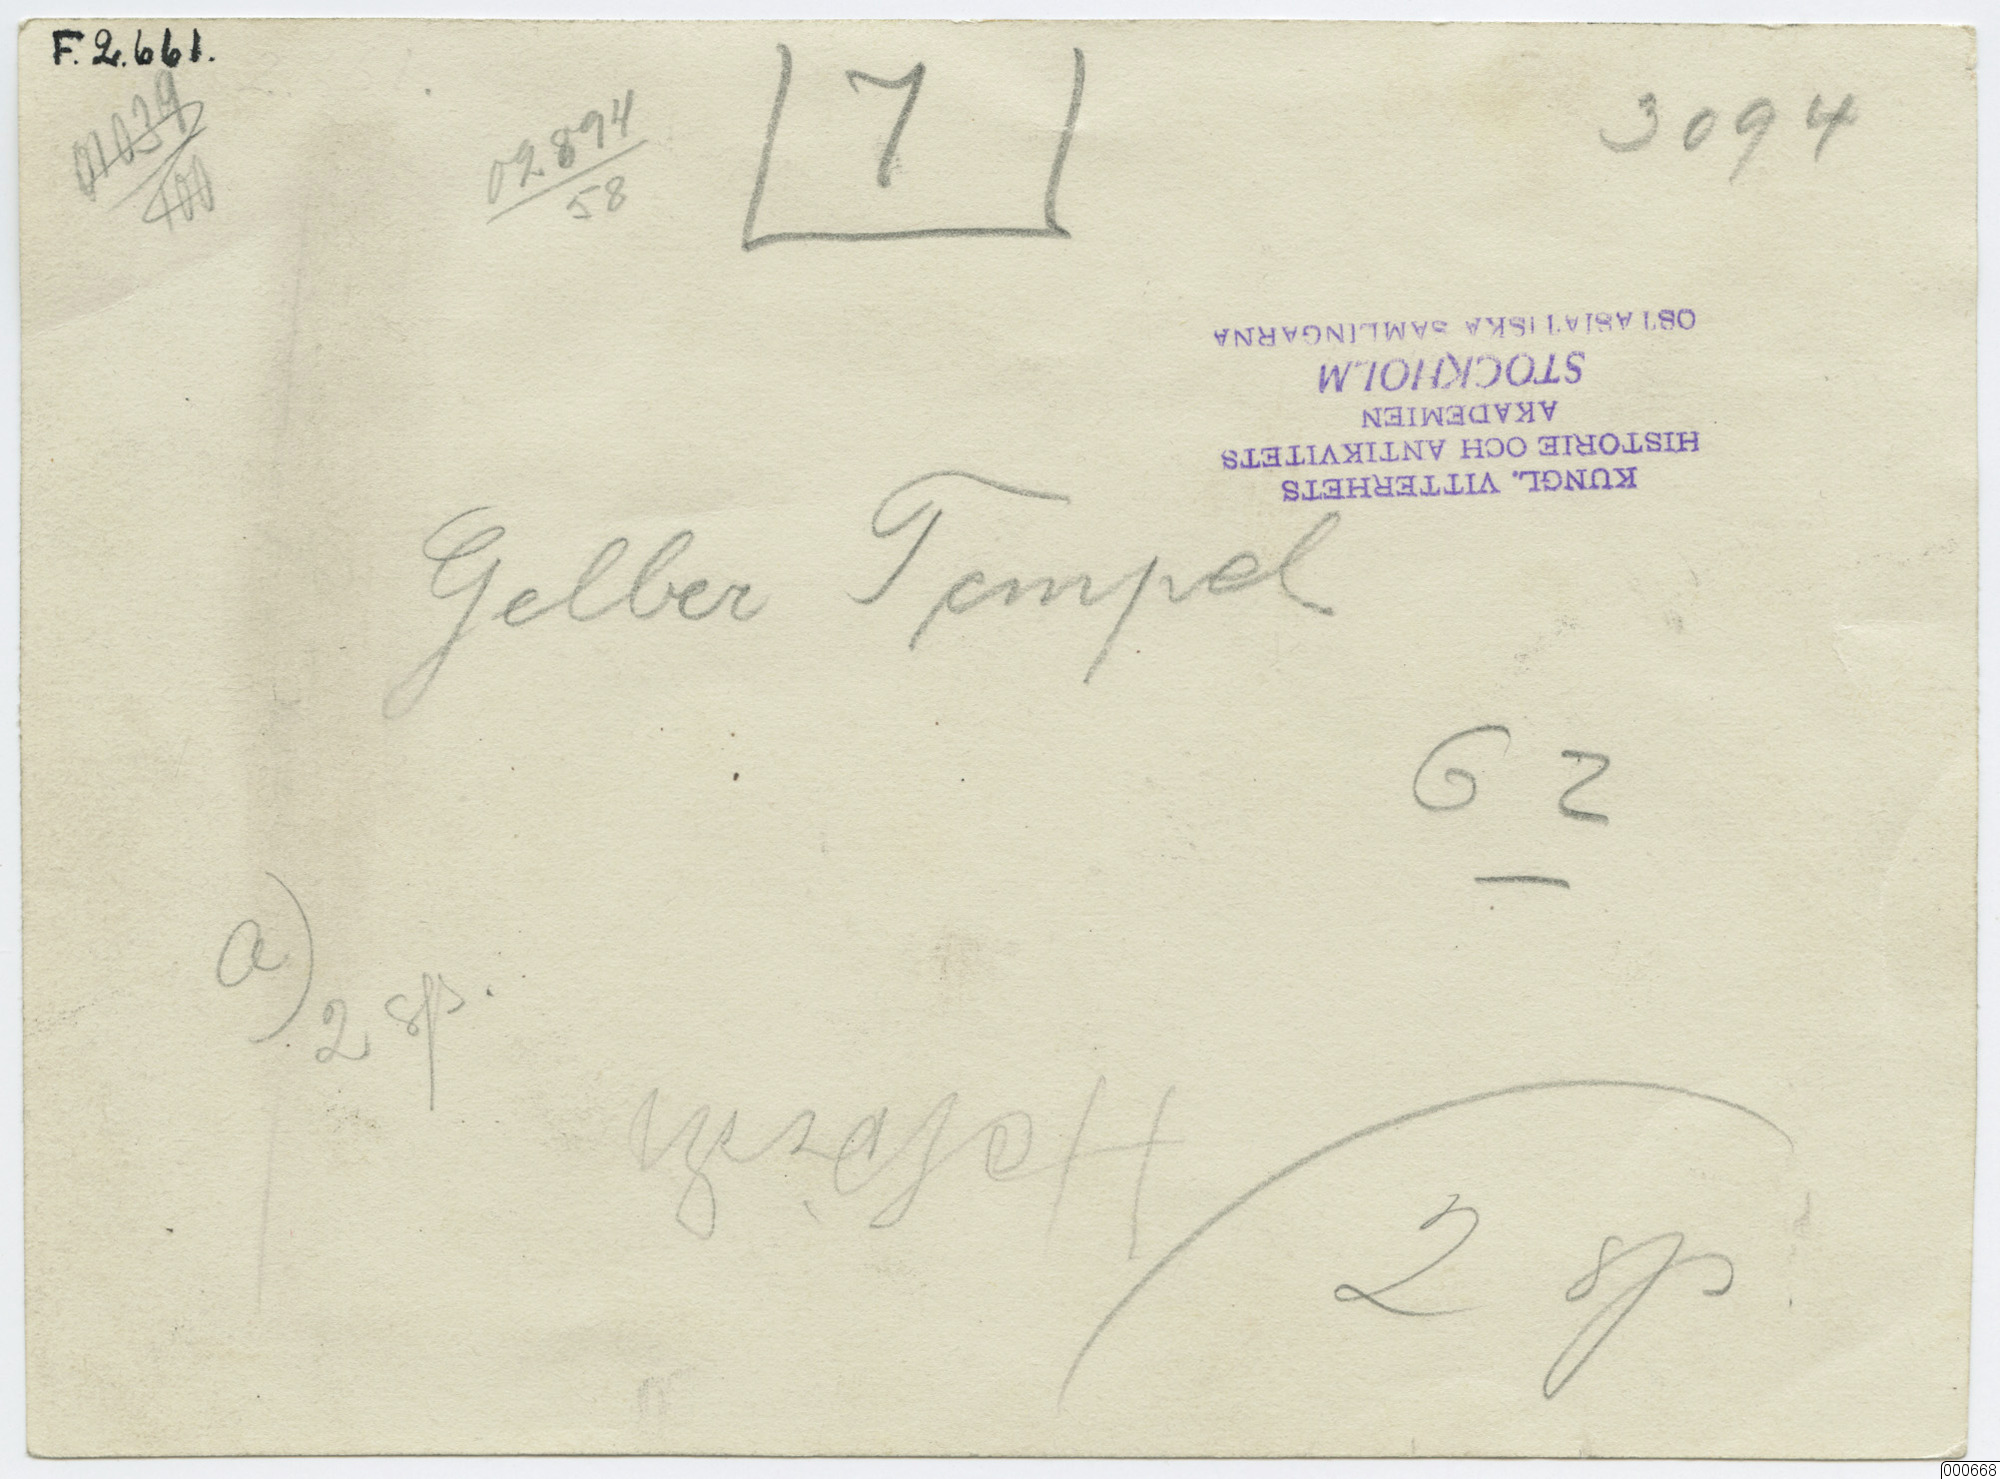 F. 2.661.
01039
100
02894
58
7
3094
KUNGL. VITTERHETS
HISTORIE OCH ANTIKVITETS
AKADEMIEN
STOCKHOLM
OSTASIATISKA SAMLINGARNA
Gelber Tempel
62
a) 2 sp.
2 sp
000668